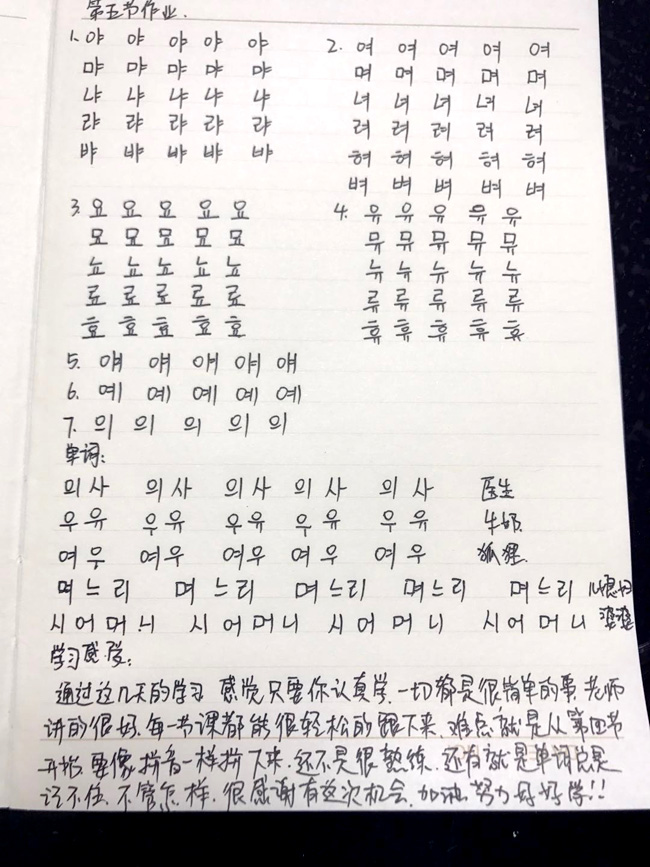 第五节作业.
1. 야 야 야 야 야
먀 먀 먀 먀 먀
냐 냐 냐 냐 냐
랴 랴 랴 랴 랴
뱌 뱌 뱌 뱌 뱌
2. 여 여 여 여 여
며 며 며 며 며
녀 녀 녀 녀 녀
려 려 려 려 려
혀 혀 혀 혀 혀
벼 벼 벼 벼 벼
3. 요 요 요 요 요
묘 묘 묘 묘 묘
뇨 뇨 뇨 뇨 뇨
료 료 료 료 료
효 효 효 효 효
4. 유 유 유 유 유
뮤 뮤 뮤 뮤 뮤
뉴 뉴 뉴 뉴 뉴
류 류 류 류 류
휴 휴 휴 휴 휴
5. 얘 얘 얘 얘 얘
6. 예 예 예 예 예
7. 의 의 의 의 의
单词:
의사 의사 의사 의사 의사 医生
우유 우유 우유 우유 우유 牛奶.
여우 여우 여우 여우 여우 狐狸
며느리 며느리 며느리 며느리 며느리 儿媳妇
시어머니 시어머니 시어머니 시어머니 婆婆
学习感觉:
通过这几天的学习 感觉只要你认真学.一切都是很简单的事.老师
讲的很好.每一节课都能很轻松的跟下来.难点就是从第四节
开始要像拼音一样拼下来.还不是很熟练.还有就是单词总是
记不住.不管怎样.很感谢有这次机会.加油努力好好学!!